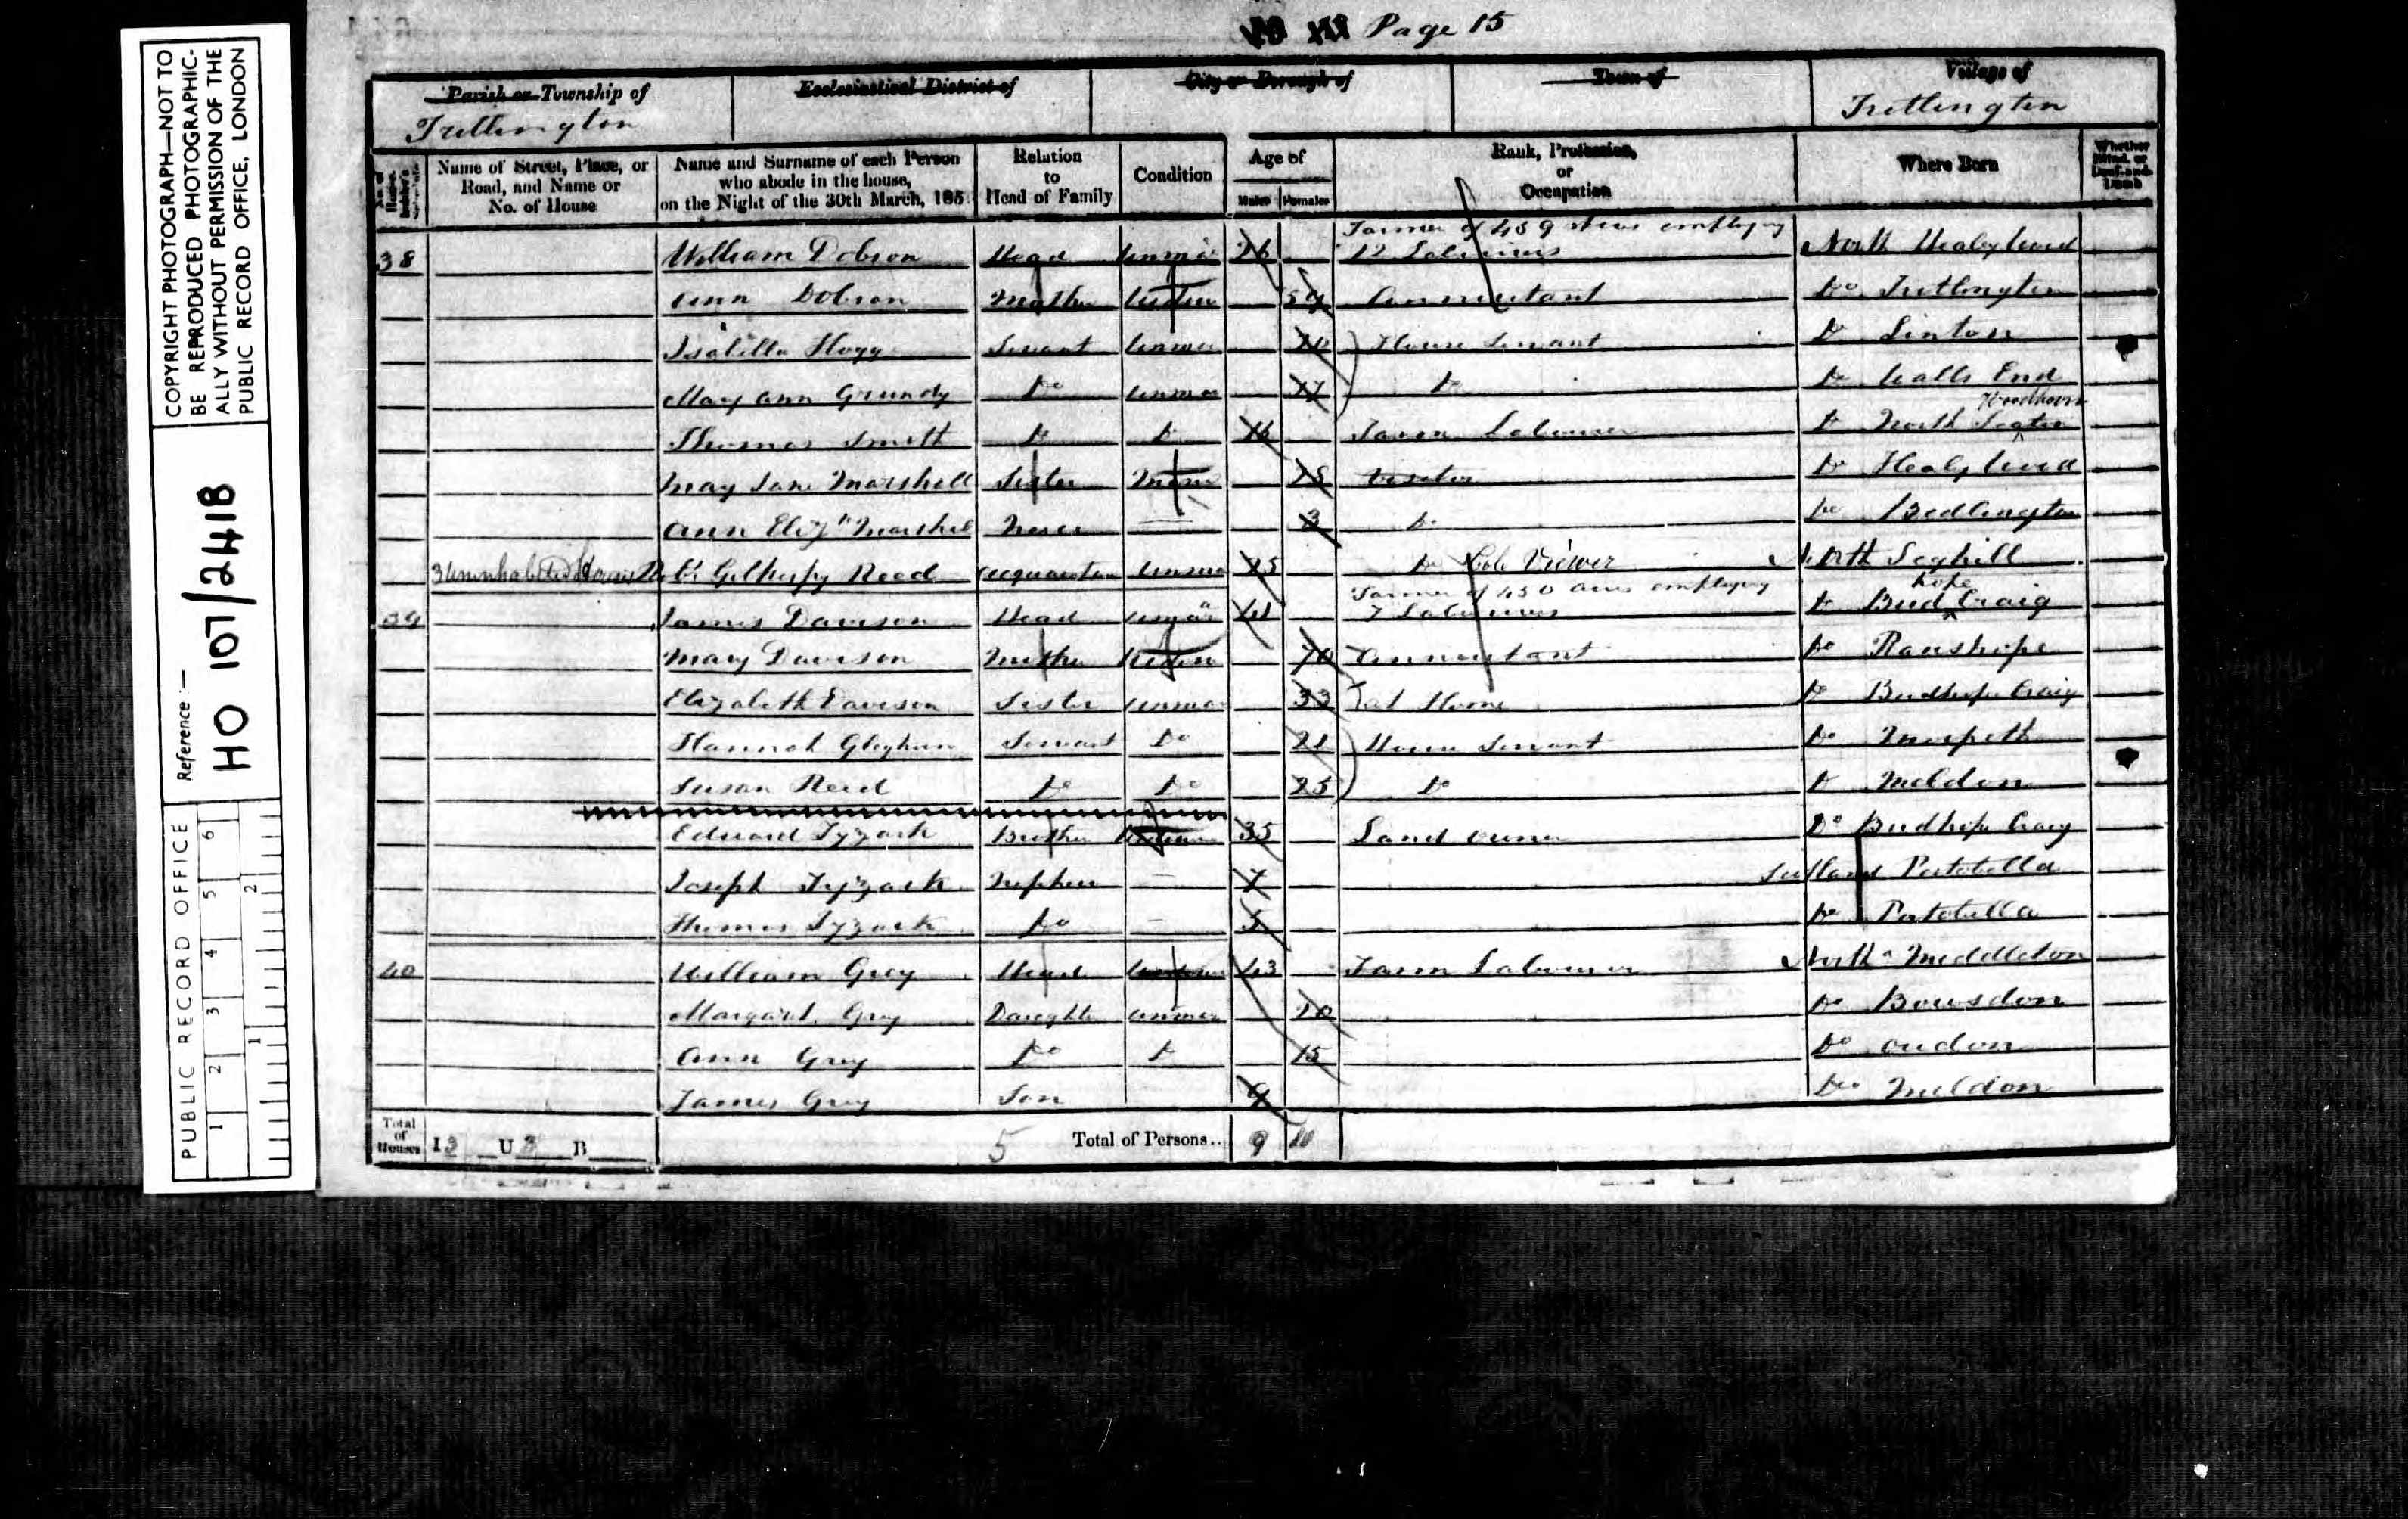 COPYRIGHT PHOTOGRAPH—NOT TO
BE REPRODUCED PHOTOGRAPHIC-
ALLY WITHOUT PERMISSION OF THE
PUBLIC RECORD OFFICE, LONDON
Reference:—
HO 107/2418
PUBLIC RECORD OFFICE
1 2 3 4 5 6
1 2
Page 15
Parish or Township of
Ecclesiastical District of
City or Borough of
Town of
Village of
Tritlington
Tritlington
Name of Street, Place, or Road, and Name or No. of House
Name and Surname of each Person who abode in the house, on the Night of the 30th March, 185
Relation to Head of Family
Condition
Age of
Males Females
Rank, Profession, or Occupation
Where Born
Whether Blind, or Deaf-and-Dumb
Farmer of 459 Acres employing
38 William Dobson Head Unmar 26 12 Labourers North Healey Wood
Ann Dobson Mother Widow 59 Annuitant Do Tritlington
Isabella Hogg Servant Unmar 20 House Servant Do Linton
Mary Ann Grundy Do Unmar 17 Do Do Walls End
Woodhorn
Thomas Smith Do Do 16 Farm Labourer Do North Seaton
May Jane Marshall Sister Mar 28 Visitor Do Healy Wood
Ann Elizth Marshal Niece — 3 Do Do Bedlington
3 Uninhabited Houses Gilhespy Reed Acquaintan Unmar 25 Do Cole Viewer North Seghill
Farmer of 450 acres employing
hope
39 James Davison Head Unmar 41 7 Labourers Do Bud Craig
Mary Davison Mother Widow 70 Annuitant Do Ranshope
Elizabeth Davison Sister Unmar 33 at Home Do Budhope Craig
Hannah Gleghun Servant Do 21 House Servant Do Morpeth
Susan Reed Do Do 25 Do Do Meldon
Edward Tyzack Brother 35 Land owner Do Budhope Craig
Joseph Tyzack Nephew — 7 Scotland Portobella
Thomas Tyzack Do — 5 Do Portobella
40 William Grey Head 43 Farm Labourer North Meddleton
Margaret Grey Daughter Unmar 20 Do Bowsdon
Ann Grey Do Do 15 Do oudon
James Grey Son 9 Do Meldon
Total of Houses I 3 U 3 B 5 Total of Persons.. 9 11